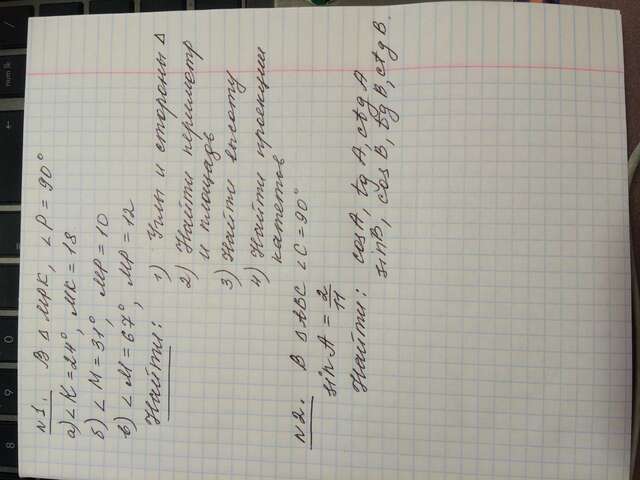 №1. В Δ MPK, ∠P = 90°
а) ∠K = 24°, MK = 18
б) ∠M = 31°, MP = 10
в) ∠M = 67°, MP = 12
Найти: 1) Углы и стороны Δ
2) Найти периметр
и площадь
3) Найти высоту
4) Найти проекции
катетов
№2. В Δ ABC ∠C = 90°
sin A = 2/11
Найти: cos A, tg A, ctg A
sin B, cos B, tg B, ctg B.
num lk
8
9
0